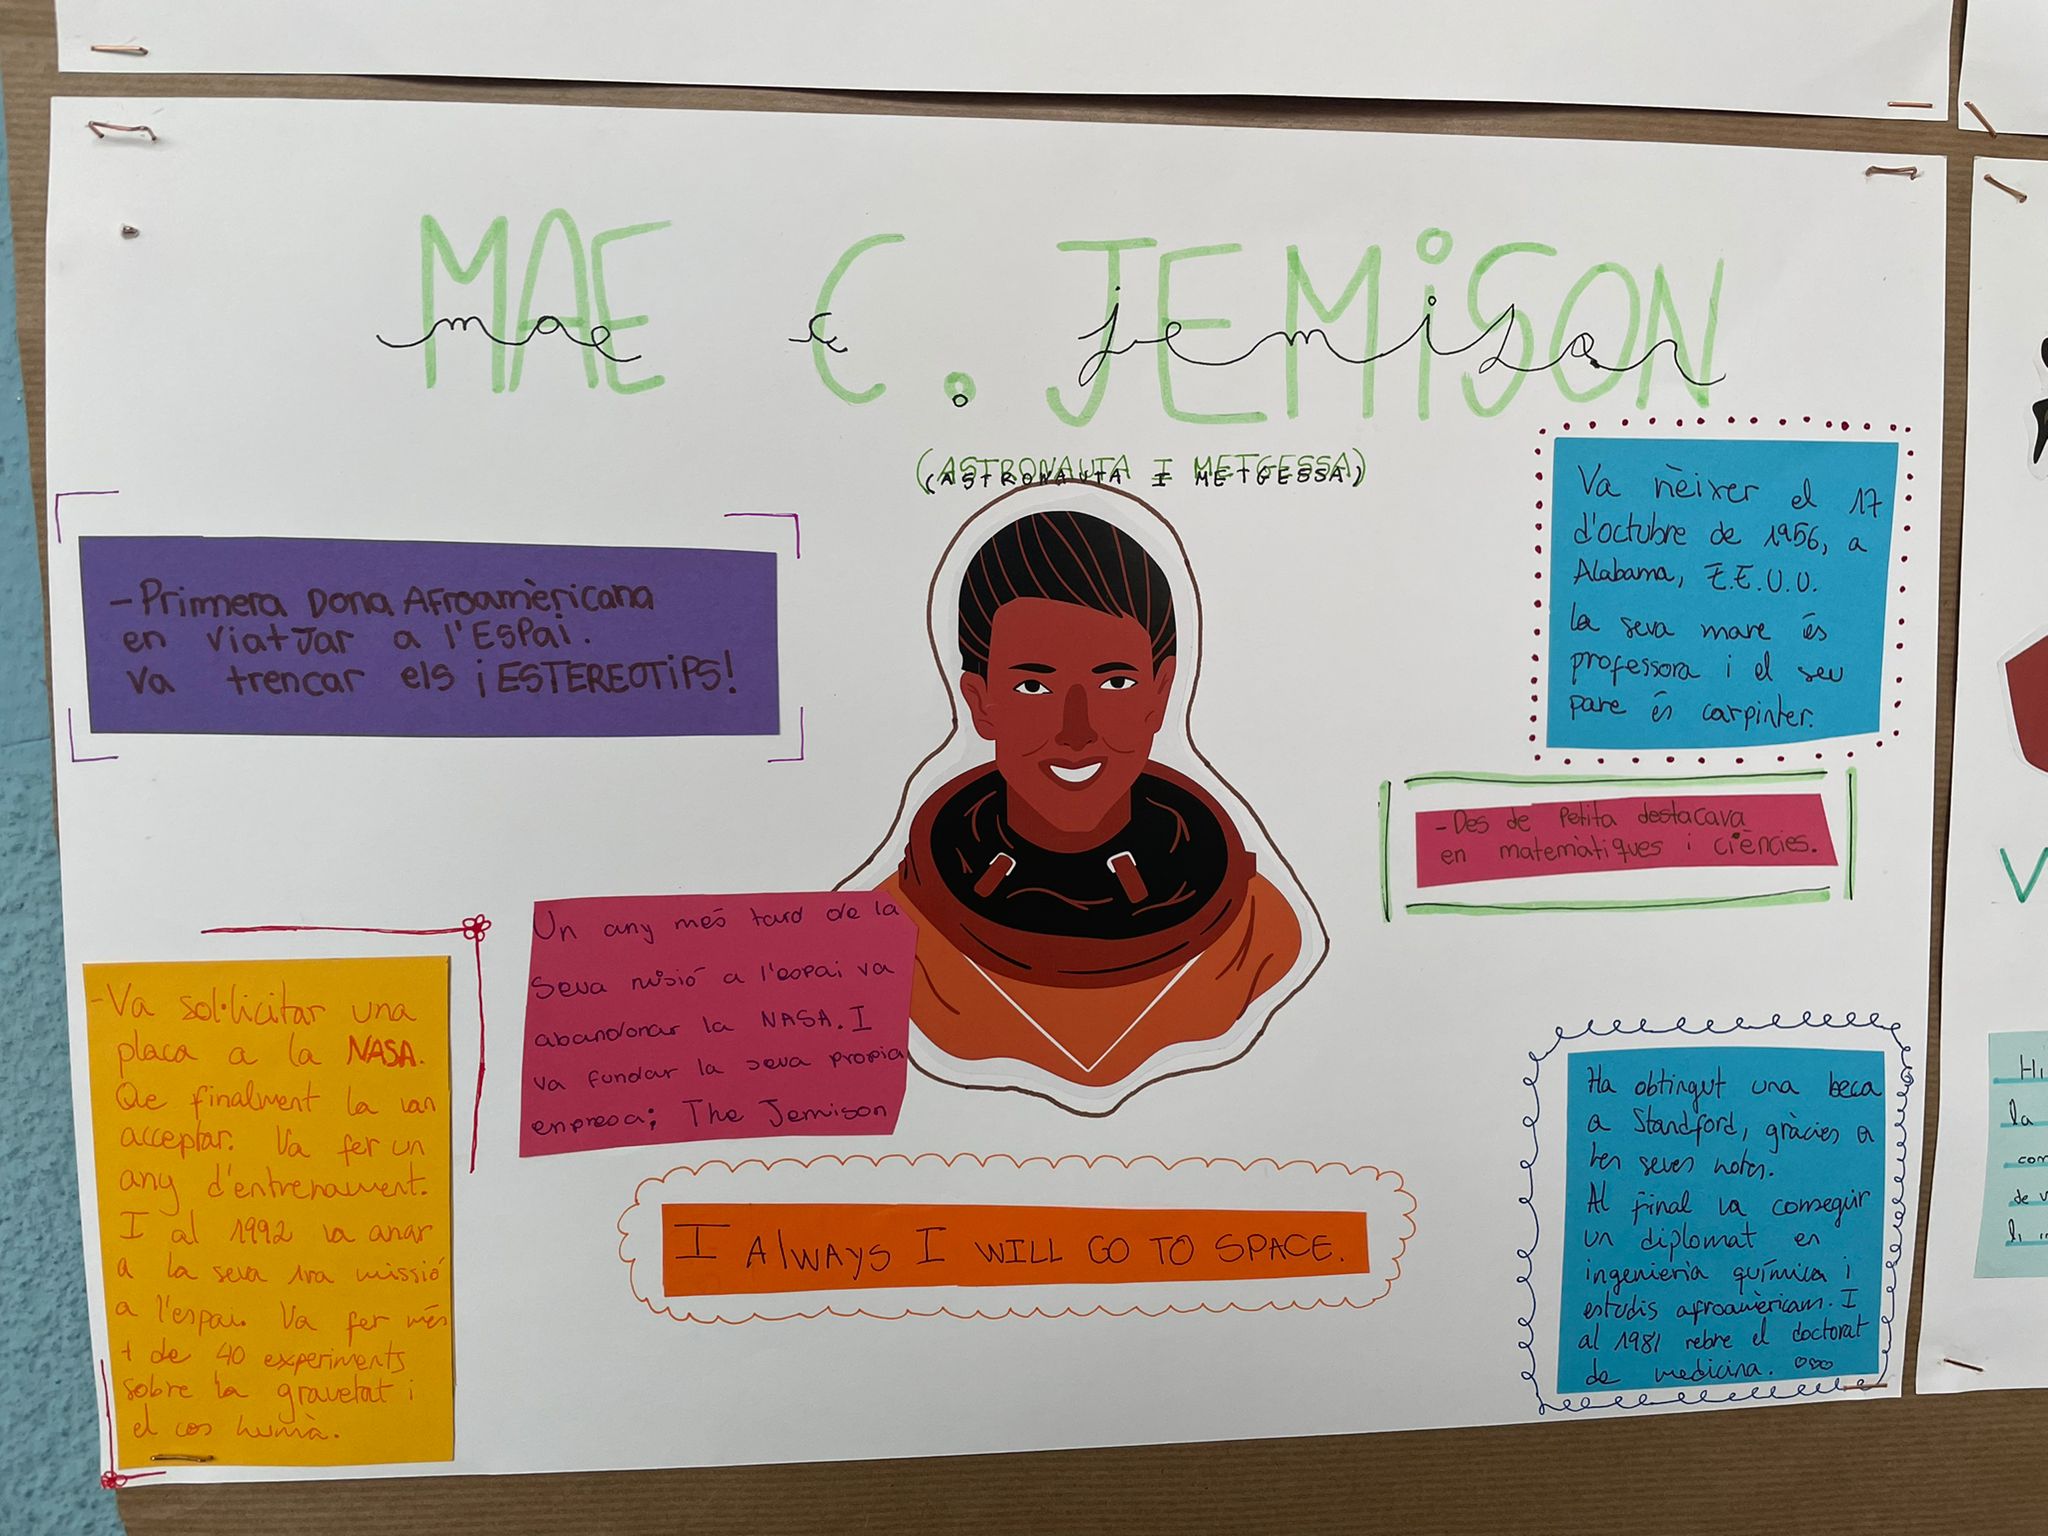 MAE C. JEMiSON
mae c. jemison
(ASTRONAUTA I METGESSA)
(ASTRONAUTA I METGESSA)
-Primera Dona Afroamèricana
en viatjar a l'Espai.
va trencar els ¡ESTEREOTiPS!
Va nèixer el 17
d'octubre de 1956, a
Alabama, E.E.U.U.
la seva mare és
professora i el seu
pare és carpinter.
-Des de petita destacava
en matemàtiques i ciències.
Un any més tard de la
seva misió a l'espai va
abandonar la NASA. I
va fundar la seva propia
empresa; The Jemison
-Va sol·licitar una
plaça a la NASA.
Que finalment la van
acceptar. Va fer un
any d'entrenament.
I al 1992 va anar
a la seva 1ra missió
a l'espai. Va fer més
+ de 40 experiments
sobre la gravetat i
el cos humà.
I ALWAYS I WILL GO TO SPACE.
Ha obtingut una beca
a Standford, gràcies a
les seves notes.
Al final va conseguir
un diplomat en
ingenieria química i
estudis afroamèricans. I
al 1981 rebre el doctorat
de medicina.
Hi
la
com
de v
li
V